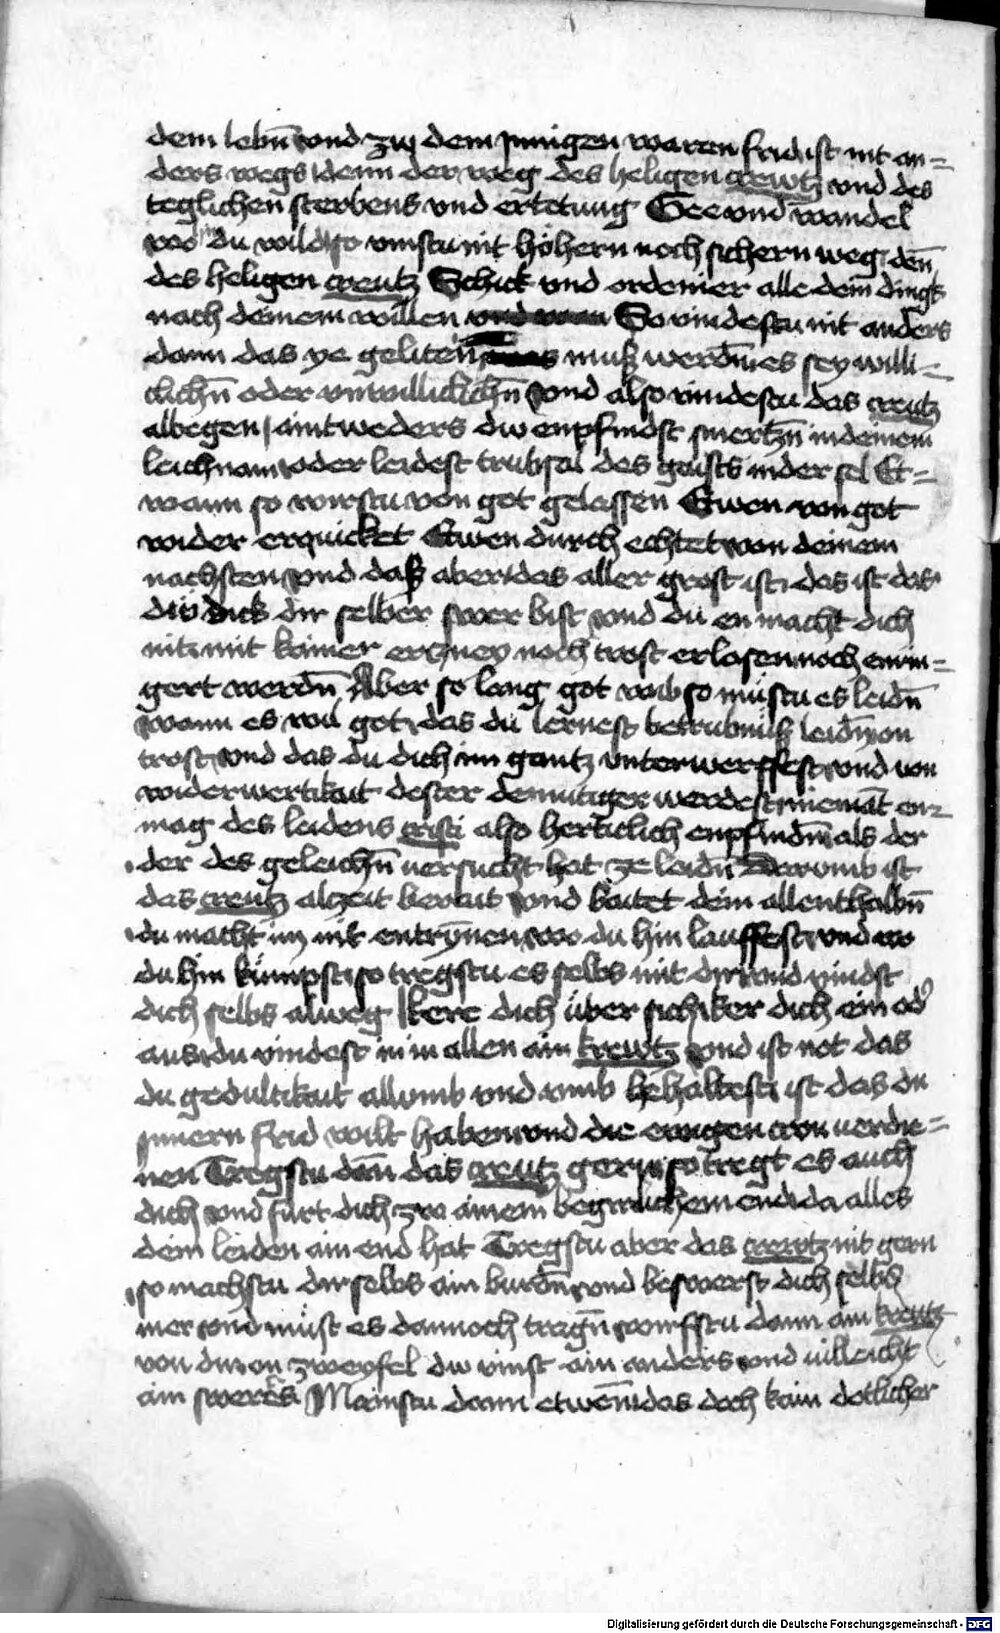 dem lebn̄ vnd zw dem jnnigen waren frid ist nit an=
ders wegs denn der weg des heligen creutz vnd des
teglichen sterbens vnd ertetung Gee vnd wandel
wo du wild so vinstu nit höhern noch sichern weg den̄
des heligen creutz Schick vnd ordenier alle dein dingk
nach deinem willen So vindestu nit anders
dann das ye geliten muß werdn̄ es sey willi=
clichn̄ oder vnwilliclichn̄ vnd also vindestu das creutz
albegen aintweders dw enpfindst smertzn̄ in deinem
leichnam oder leidest trubsal des gaists in der sel Et=
wann so wirstu von got gelassen Etwen von got
wider erquicket Etwen durch echtet von deinem
nachsten vnd daß aber das aller grost ist das ist das
du dick dir selber swer bist vnd du en macht dich
nit mit kainer ertzney noch trost erlosen noch emin=
gert werdn̄ Aber so lang got wil so müstu es leidn̄
Wann es wil got das du lernest betrubnuß leidn̄ on
trost vnd das du dich im gantz vnterwerffest vnd von
widerwertikait dester demutiger werdest niemāt en=
mag des leidens cristi also hertzlich enpfindn̄ als der
der des geleichn̄ versucht hat ze leidn̄ Darvmb ist
das creutz alzeit berait vnd baitet dein allenthalbn̄
du macht im nit entrynnen wo du hin lauffest vnd wo
du hin kümpst so tregstu es selbs mit dir vnd vindst
dich selbs alweg Kere dich über sich ker dich ein od̉
aus du vindest in in allen ain kreutz vnd ist not das
du gedultikait allumb vnd vmb behaltest ist das du
jnnern frid wilt haben vnd die ewigen cron verdie=
nen Tregstu dan̄ das creutz gern so tregt es auch
dich vnd furt dich zw ainem begirlichem end da alles
dein leiden ain end hat Tregstu aber das creutz nit gern
so machstu dir selbs ain burdn̄ vnd beswerst dich selbs
mer vnd müst es dannoch tragn̄ wirffstu dann ain kreutz
von dir on zweyfel dw vinst ain anders vnd villeicht
ain swerers Mainstu dann etwen̄ das doch kain dotlicher
Digitalisierung gefördert durch die Deutsche Forschungsgemeinschaft - DFG